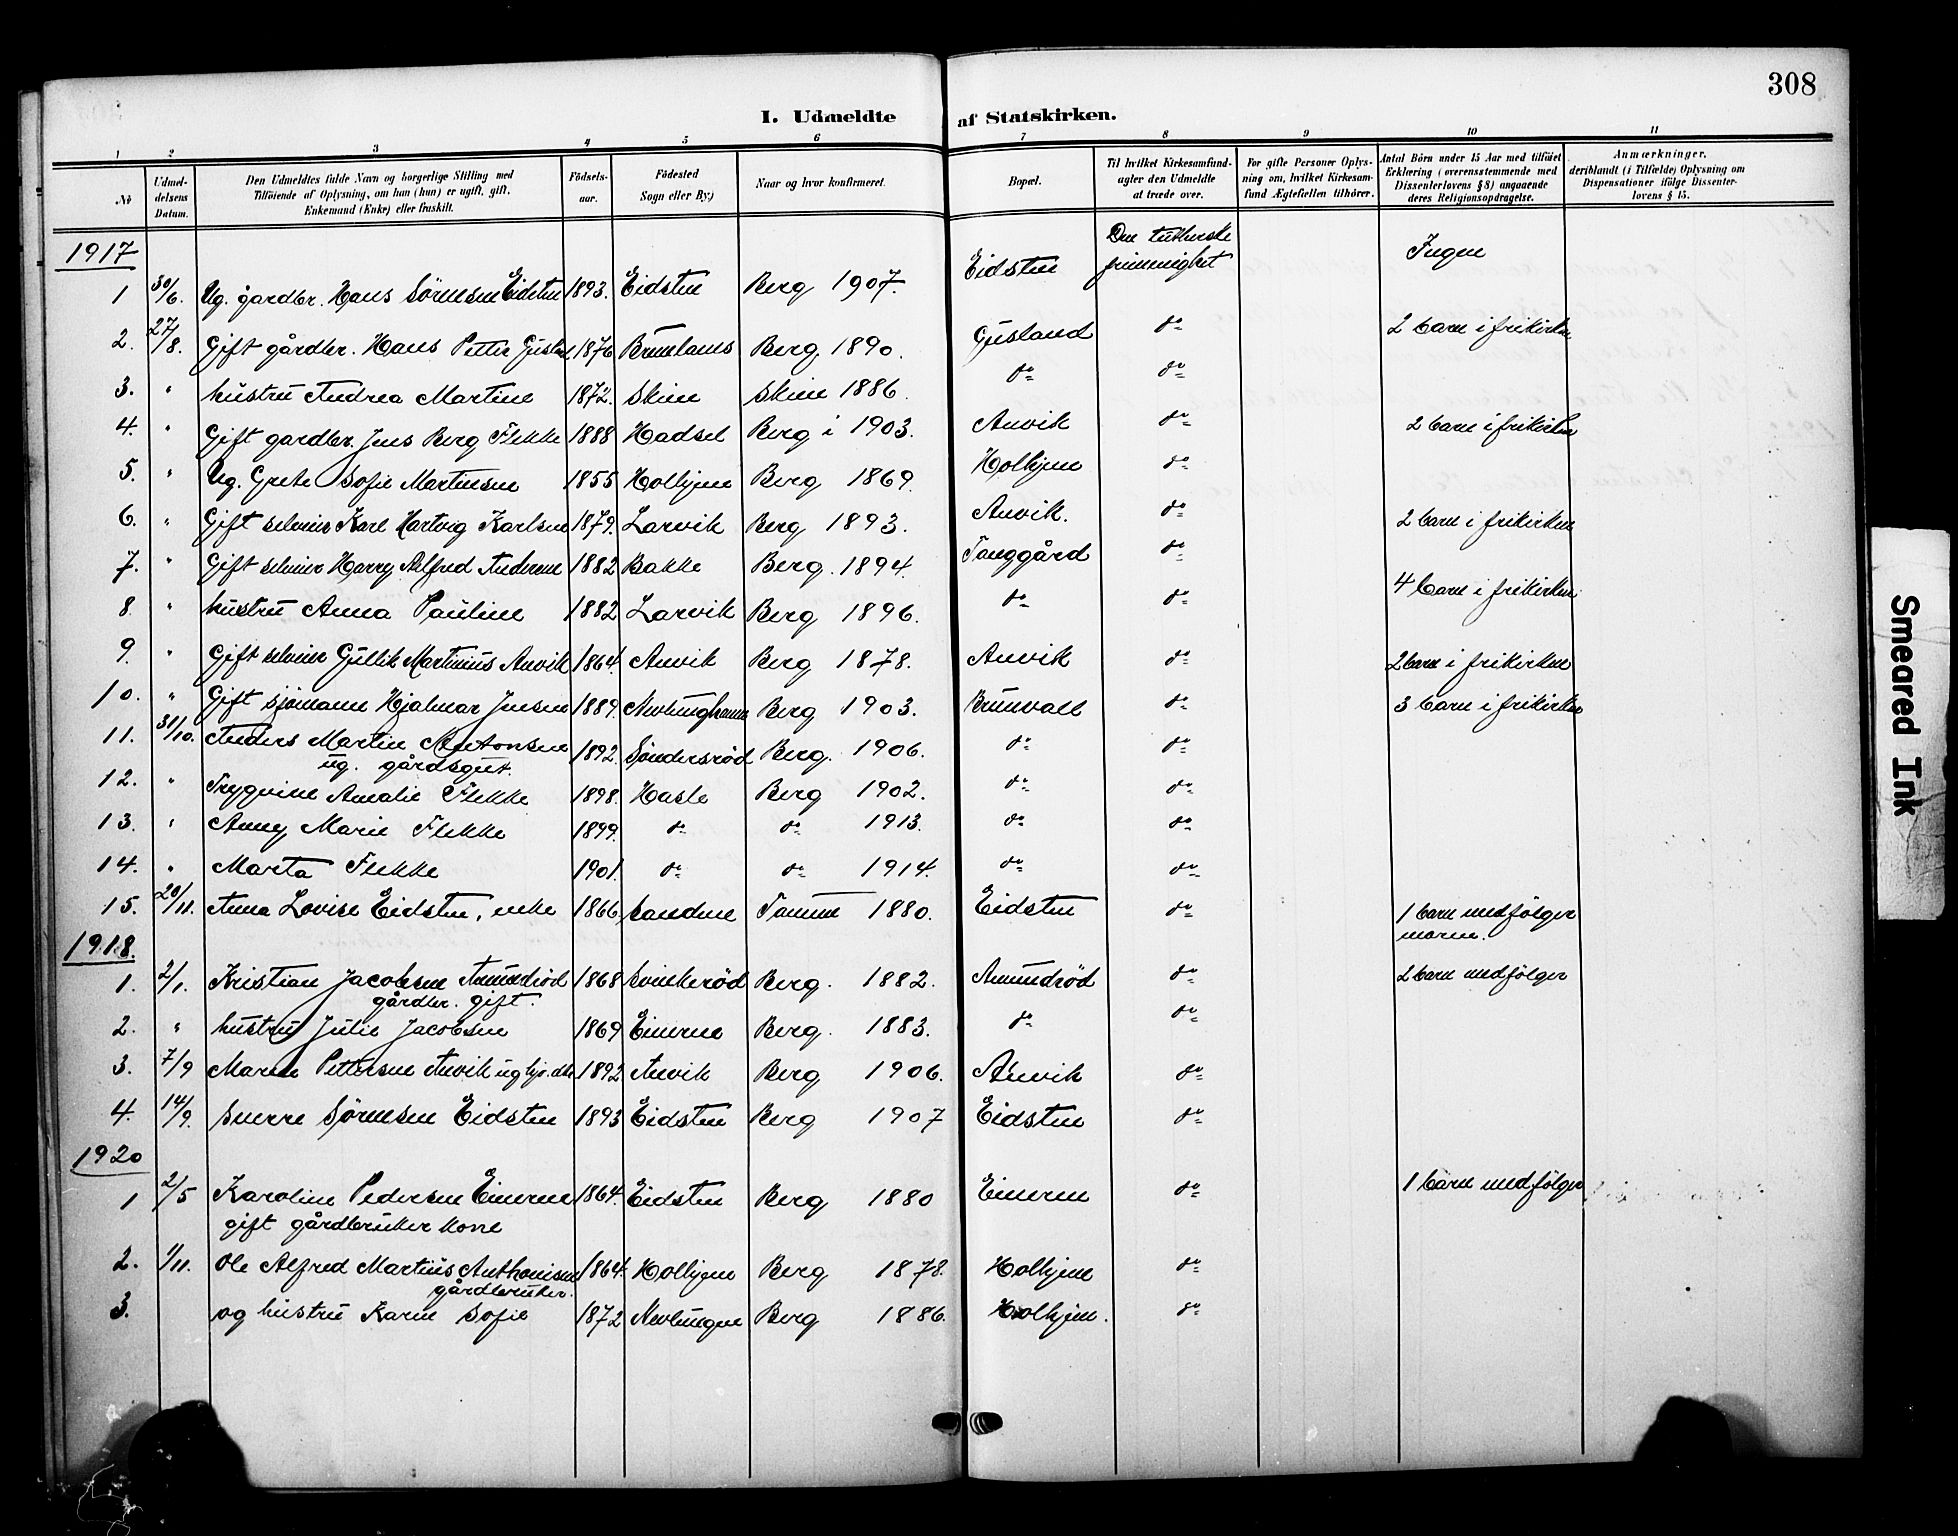 308
I. Udmeldte af Statskirken.
1 2 3 4 5 6 7 8 9 10 11
No
Udmeldelsens Datum.
Den Udmeldtes fulde Navn og borgerlige Stilling med
Tilføiende af Oplysning, om han (hun) er ugift, gift,
Enkemand (Enke) eller fraskilt.
Fødselsaar.
Fødested
Sogn eller By)
Naar og hvor konfirmeret.
Bopæl.
Til hvilket Kirkesamfund
agter den Udmeldte
at træde over.
For gifte Personer Oplysning om, hvilket Kirkesamfund Ægtefællen tilhører.
Antal Børn under 15 Aar med tilføiet
Erklæring (overensstemmende med
Dissenterlovens § 8) angaaende
deres Religionsopdragelse.
Anmærkninger,
deriblandt (i Tilfælde) Oplysning om
Dispensationer ifølge Dissenterlovens § 15.
1917
1 30/6. Ug. gardbr. Hans Sørensen Eidsten 1893. Eidsten Berg 1907. Eidsten Den lutherske frimenighet Ingen
2. 27/8. Gift gårdbr. Hans Petter 1876 Brunlanes Berg 1890. Gusland do 2 barn i frikirken
3. " hustru Andrea Martine 1872. Skien Skien 1886. do do
4. " Gift gardbr. Jens Berg Flekke 1888 Hadsel Berg i 1903. Anvik do 2 barn i frikirken
5. " Ug. Grete Sofie Martinsen 1855 Holhjem Berg 1869. Holhjem do
6. " Gift Karl Hartvig Karlsen 1879. Larvik Berg 1893. Anvik. do 2 barn i frikirken
7. " Gift Harry Alfred Andersen 1882 Bakke Berg. 1894. Tanggård do
8. " hustru Anna Pauline 1882 Larvik Berg 1896. do do 4 barn i frikirken
9. " Gift Gullik Martinius Anvik 1864. Anvik Berg 1878. Anvik do 2 barn i frikirken
10. " Gift sjømann Hjalmar Jensen 1889. Nevlunghavn Berg 1903. Brunvall do 3 barn i frikirken
11. 31/10. Anders Martin Antonsen 1892. Søndersrød Berg. 1906. do do
ug. gårdsgut.
12. " Trygvine Amalie Flekke 1898. Hasle Berg 1902. do do
13. " Anny Marie Flekke 1899. do do 1913. do do
14. " Marta Flekke 1901. do do 1914. do do
15. 20/11. Anna Lovise Eidsten, enke 1866, Sandene Tanum 1880. Eidsten do 1 barn medfølger
moren.
1918.
1. 2/1. Kristian Jacobsen Amundrød 1868 Svinkerød Berg. 1882. Amundrød do 2 barn medfølger
gårdbr. gift.
2. " hustru Julie Jacobsen 1869 Eineren Berg. 1883. do do
3. 7/9 Maren Pettersen Anvik ug 1892 Anvik Berg 1906. Anvik do
4. 14/9. Sverre Sørensen Eidsten 1893 Eidsten Berg 1907 Eidsten do
1920
1 2/5 Karoline Pedersen Eineren 1864. Eidsten Berg 1880 Eineren do 1 barn medfølger
gift gårdbruker kone
2. 1/11. Ole Alfred Martius Anthonisen 1864. Holhjem Berg 1878. Holhjem do
gårdbruker.
3. og hustru Karen Sofie 1872 Nevlungen Berg 1886. Holhjem. do
Smeared Ink